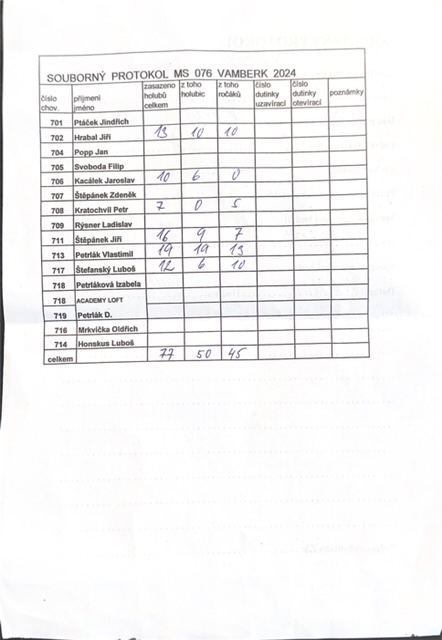 SOUBORNÝ PROTOKOL MS 076 VAMBERK 2024
číslo chov. příjmení jméno zasazeno holubů celkem z toho holubic z toho ročáků číslo dutinky uzavírací číslo dutinky otevírací poznámky
701 Ptáček Jindřich
702 Hrabal Jiří 13 10 10
704 Popp Jan
705 Svoboda Filip
706 Kacálek Jaroslav 10 6 0
707 Štěpánek Zdeněk
708 Kratochvil Petr 7 0 5
709 Rýsner Ladislav
711 Štěpánek Jiří 16 9 7
713 Petrlák Vlastimil 19 19 13
717 Štefanský Luboš 12 6 10
718 Petrláková Izabela
718 ACADEMY LOFT
719 Petrlák D.
716 Mrkvička Oldřich
714 Honskus Luboš
celkem 77 50 45